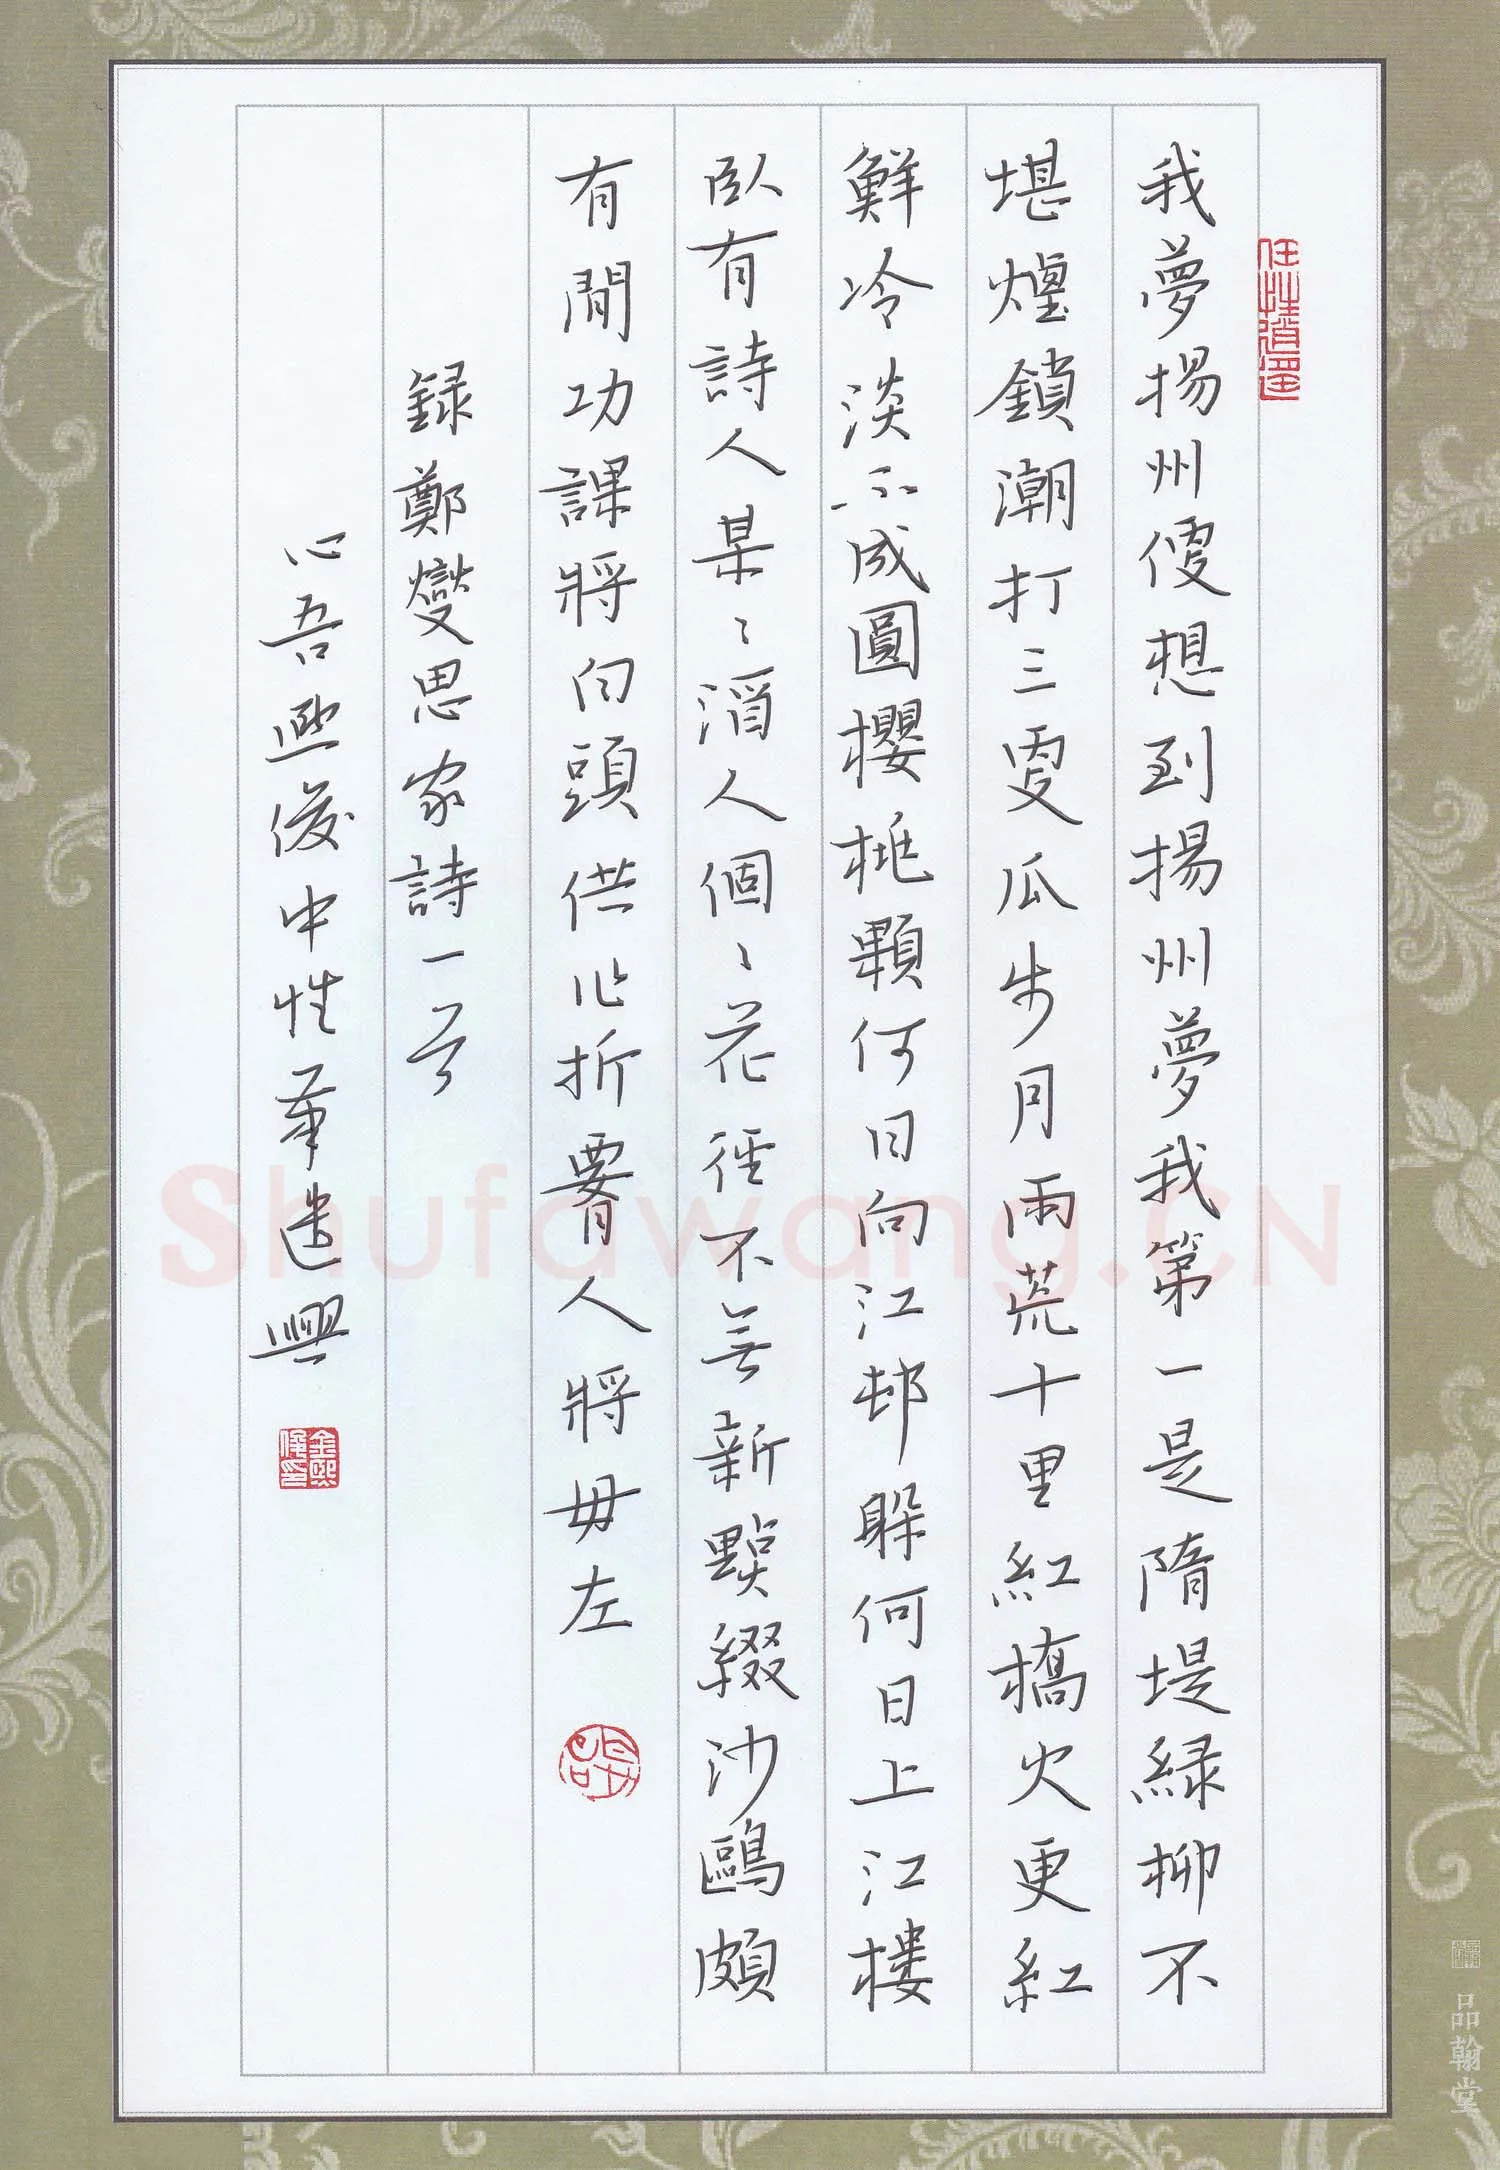 我夢揚州便想到揚州夢我第一是隋堤緑柳不
堪煙鎖潮打三更瓜步月雨荒十里紅橋火更紅
鮮冷淡不成圓櫻桃顆何日向江邨躲何日上江樓
臥有詩人某〻酒人個〻花徑不無新點綴沙鷗頗
有閒功課將白頭供作折腰人將毋左
録鄭燮思家詩一首
心吾熙俊中性筆遣興
金熙俊印
Shufawang.CN
品翰堂